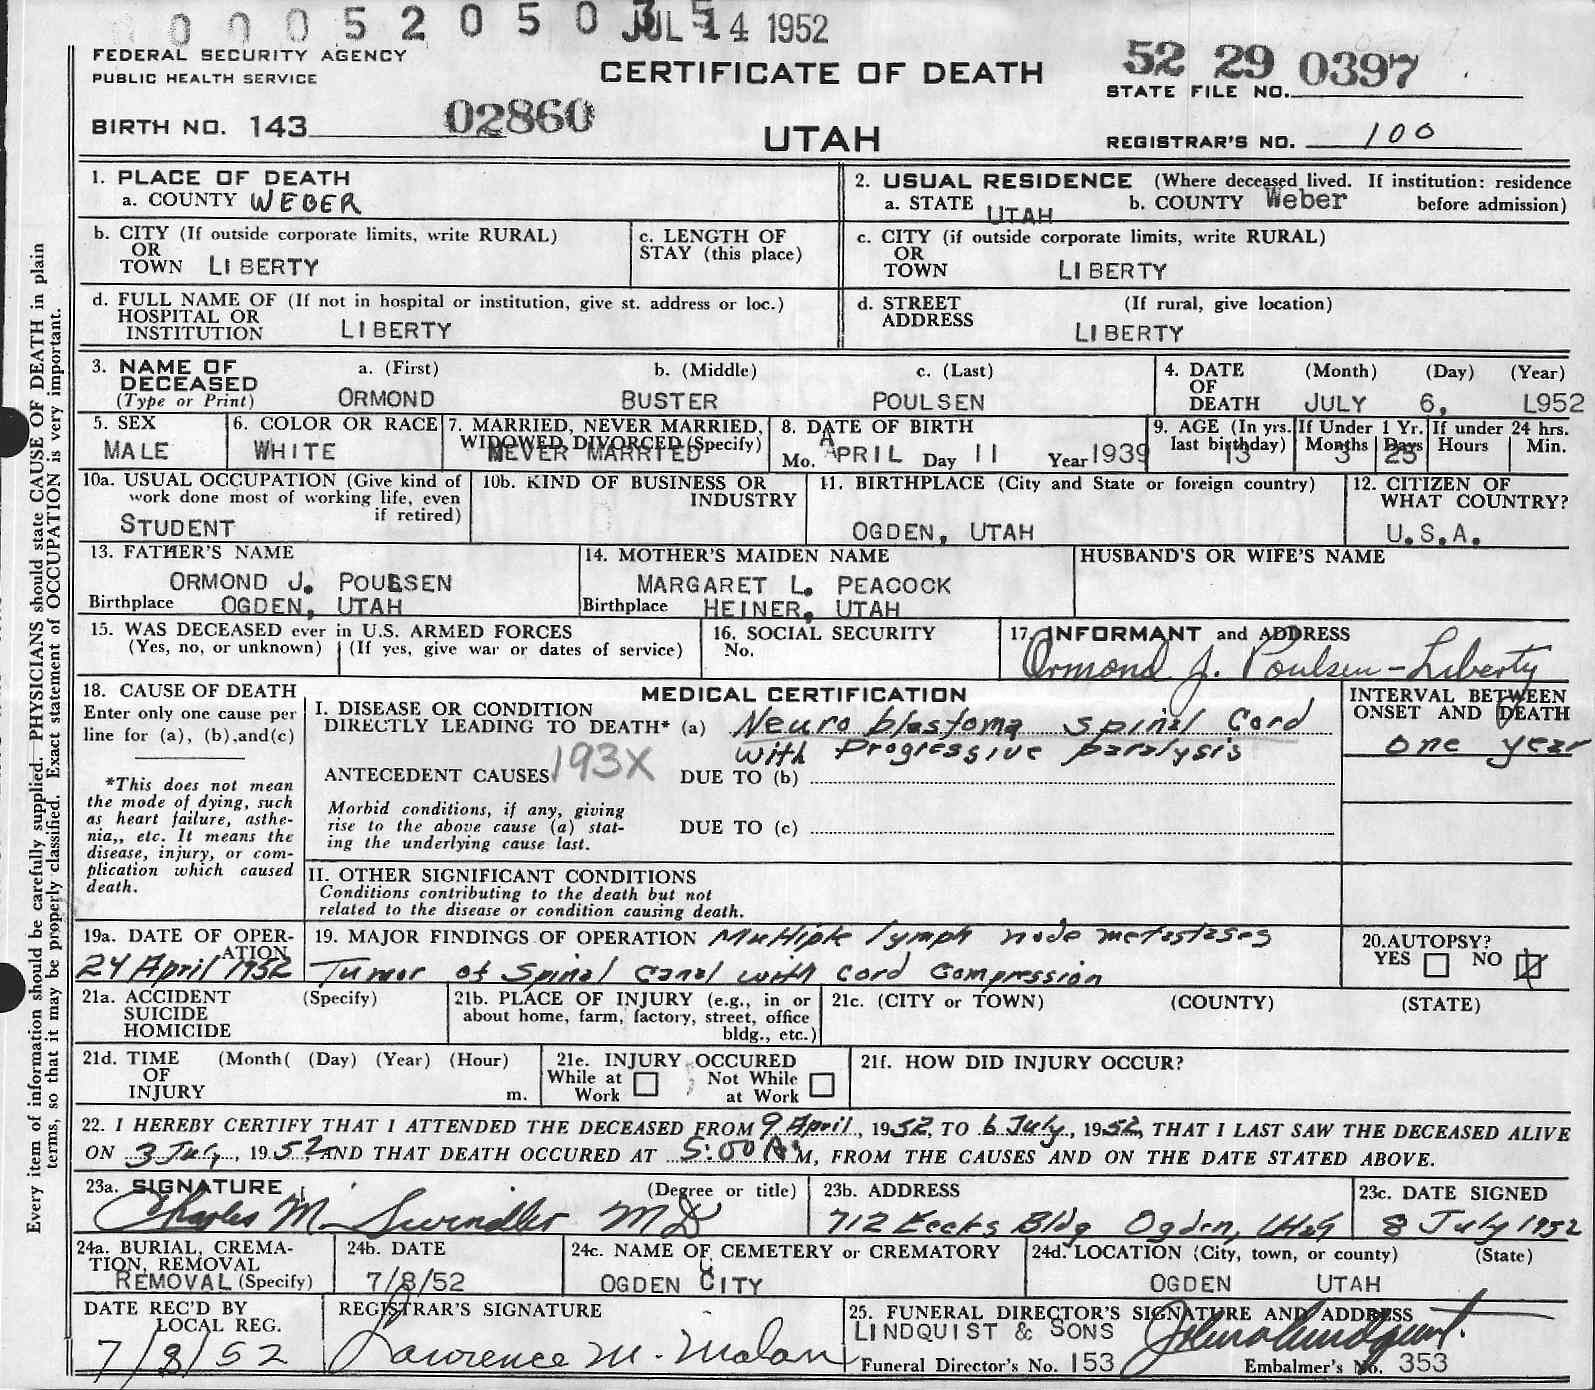 0 0 0 5 2 0 5 0 JUL 14 1952
FEDERAL SECURITY AGENCY
PUBLIC HEALTH SERVICE
CERTIFICATE OF DEATH
52 29 0397
STATE FILE NO.
BIRTH NO. 143 02860
UTAH
REGISTRAR'S NO. 100
1. PLACE OF DEATH
a. COUNTY WEBER
2. USUAL RESIDENCE (Where deceased lived. If institution: residence before admission)
a. STATE UTAH b. COUNTY Weber
b. CITY (If outside corporate limits, write RURAL)
OR
TOWN LIBERTY
c. LENGTH OF
STAY (this place)
c. CITY (if outside corporate limits, write RURAL)
OR
TOWN LIBERTY
d. FULL NAME OF (If not in hospital or institution, give st. address or loc.)
HOSPITAL OR
INSTITUTION LIBERTY
d. STREET (If rural, give location)
ADDRESS LIBERTY
3. NAME OF DECEASED
(Type or Print)
a. (First) b. (Middle) c. (Last)
ORMOND BUSTER POULSEN
4. DATE OF DEATH (Month) (Day) (Year)
JULY 6, L952
5. SEX
MALE
6. COLOR OR RACE
WHITE
7. MARRIED, NEVER MARRIED,
WIDOWED, DIVORCED (Specify)
NEVER MARRIED
8. DATE OF BIRTH
Mo. APRIL Day 11 Year 1939
9. AGE (In yrs. last birthday) 13
If Under 1 Yr. Months 3 Days 25
If under 24 hrs. Hours Min.
10a. USUAL OCCUPATION (Give kind of
work done most of working life, even
if retired)
STUDENT
10b. KIND OF BUSINESS OR
INDUSTRY
11. BIRTHPLACE (City and State or foreign country)
OGDEN, UTAH
12. CITIZEN OF
WHAT COUNTRY?
U.S.A.
13. FATHER'S NAME
ORMOND J. POULSEN
Birthplace OGDEN, UTAH
14. MOTHER'S MAIDEN NAME
MARGARET L. PEACOCK
Birthplace HEINER, UTAH
HUSBAND'S OR WIFE'S NAME
15. WAS DECEASED ever in U.S. ARMED FORCES
(Yes, no, or unknown) (If yes, give war or dates of service)
16. SOCIAL SECURITY
No.
17. INFORMANT and ADDRESS
Ormond J. Poulsen - Liberty
18. CAUSE OF DEATH
Enter only one cause per
line for (a), (b), and (c)
*This does not mean
the mode of dying, such
as heart failure, asthe-
nia,, etc. It means the
disease, injury, or com-
plication which caused
death.
MEDICAL CERTIFICATION
I. DISEASE OR CONDITION
DIRECTLY LEADING TO DEATH* (a) Neuroblastoma spinal Cord
with Progressive paralysis
INTERVAL BETWEEN
ONSET AND DEATH
one year
ANTECEDENT CAUSES 193X DUE TO (b)
Morbid conditions, if any, giving
rise to the above cause (a) stat-
ing the underlying cause last.
DUE TO (c)
II. OTHER SIGNIFICANT CONDITIONS
Conditions contributing to the death but not
related to the disease or condition causing death.
19a. DATE OF OPER-
ATION
24 April 1952
19. MAJOR FINDINGS OF OPERATION Multiple lymph node metastases
Tumor of Spinal Canal with Cord Compression
20. AUTOPSY?
YES NO X
21a. ACCIDENT (Specify)
SUICIDE
HOMICIDE
21b. PLACE OF INJURY (e.g., in or
about home, farm, factory, street, office
bldg., etc.)
21c. (CITY or TOWN) (COUNTY) (STATE)
21d. TIME (Month( (Day) (Year) (Hour)
OF
INJURY m.
21e. INJURY OCCURED
While at Work Not While at Work
21f. HOW DID INJURY OCCUR?
22. I HEREBY CERTIFY THAT I ATTENDED THE DECEASED FROM 9 April, 1952, TO 6 July, 1952, THAT I LAST SAW THE DECEASED ALIVE
ON 3 July, 1952, AND THAT DEATH OCCURED AT 5:00 A M, FROM THE CAUSES AND ON THE DATE STATED ABOVE.
23a. SIGNATURE (Degree or title)
Charles M. Swindler MD
23b. ADDRESS
712 Eccles Bldg Ogden, Utah
23c. DATE SIGNED
8 July 1952
24a. BURIAL, CREMA-
TION, REMOVAL
REMOVAL (Specify)
24b. DATE
7/8/52
24c. NAME OF CEMETERY or CREMATORY
OGDEN CITY
24d. LOCATION (City, town, or county) (State)
OGDEN UTAH
DATE REC'D BY
LOCAL REG.
7/8/52
REGISTRAR'S SIGNATURE
Lawrence M. Malan
25. FUNERAL DIRECTOR'S SIGNATURE AND ADDRESS
LINDQUIST & SONS
Funeral Director's No. 153 Embalmer's No. 353
Every item of information should be carefully supplied. PHYSICIANS should state CAUSE OF DEATH in plain
terms, so that it may be properly classified. Exact statement of OCCUPATION is very important.